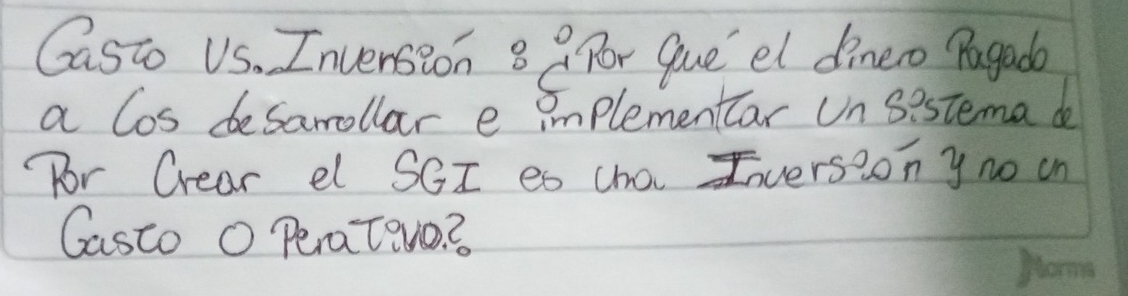 Gasto Vs. Inversión : ¿Por qué el dinero Pagado
a los desarrollar e implementar un sistema de
Por Crear el SGI es una Inversión y no un
Gasto Operativo?
Norma